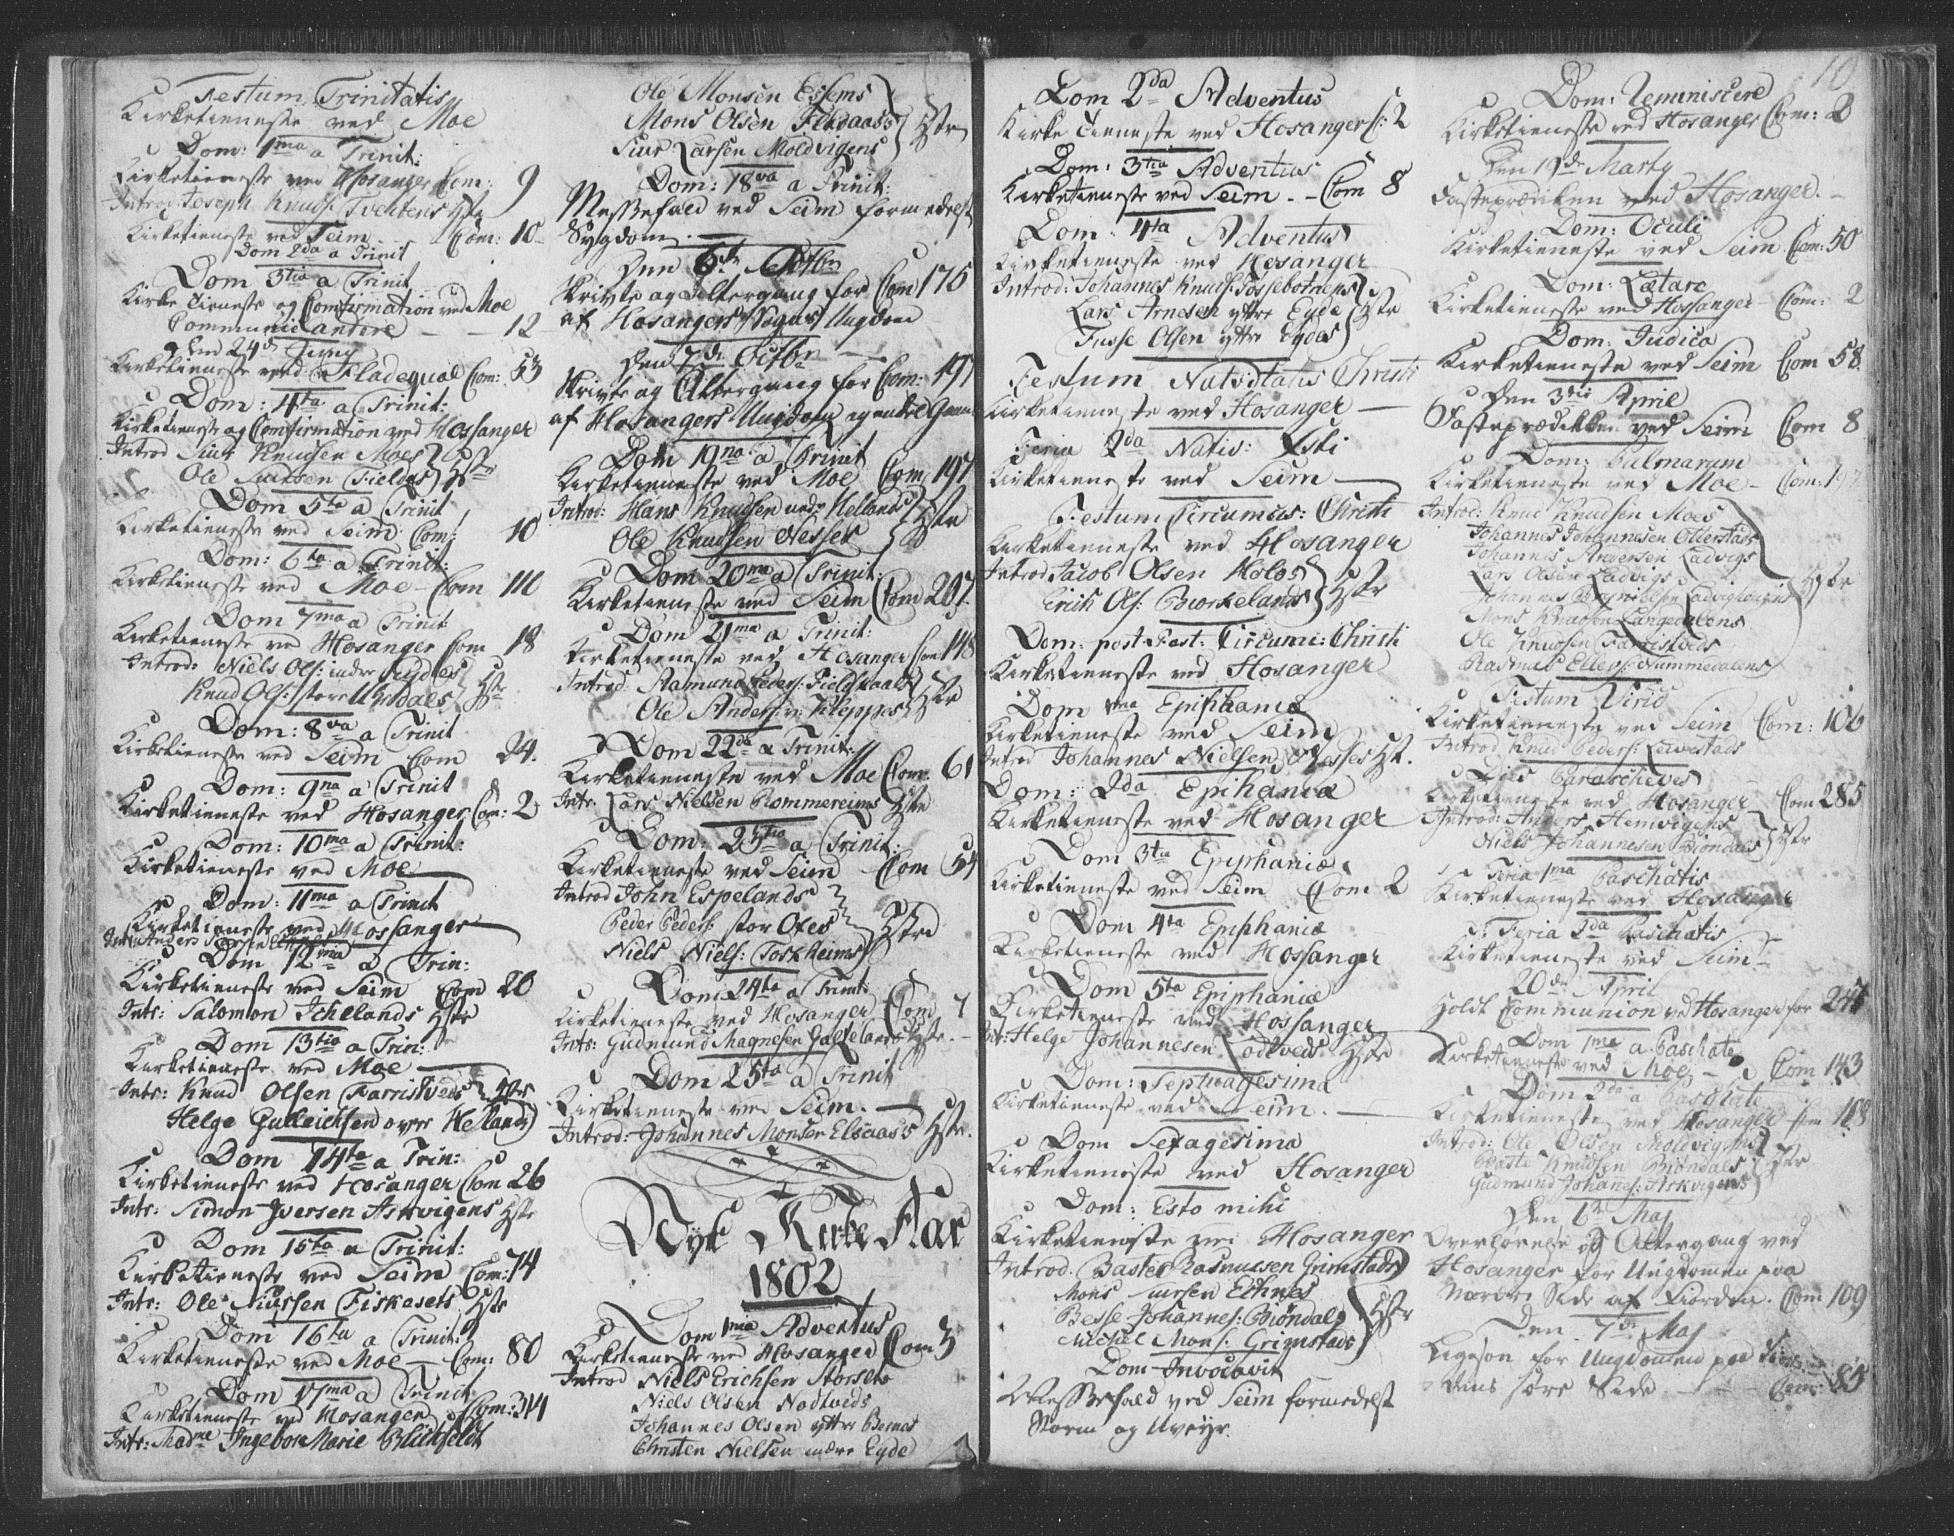 Festum Trinitatis
Kirketieneste ved Moe
Dom: 1ma a Trinit:
Kirketieneste ved Hosanger Com: 9
Introd: Joseph Knuds: Tvetens Hstr
Kirketieneste ved Seim Com: 10
Dom 2da a Trinit
Dom 3tia a Trinit
Kirke tieneste og Confirmation ved Moe
Communicantere - - 12
Den 24de Juny
Kirketieneste ved Fladequal Com: 53
Dom: 4ta a Trinit:
Kirketienest og Confirmation ved Hossanger
Introd Siur Knudsen Moes
Ole Siursen Hstr
Dom 5ta a Trinit
Kirketieneste ved Seim Com: 10
Dom: 6ta a Trinit:
Kirketieneste ved Moe - Com 111
Dom 7ma a Trinit
Kirketieneste ved Hosanger Com 18
Introd: Niels Ols: indre
Knud Ols: store Urdals Hstr
Dom: 8va a Trinit
Kirketieneste ved Seim Com 24.
Dom: 9na a Trinit
Kirketieneste ved Hosanger Com: 2
Dom: 10ma a Trinit:
Kirketieneste ved Moe
Dom: 11ma a Trinit
Kirketieneste ved Hossanger
Intr: Anders
Dom 12ma a Trin:
Kirketieneste ved Seim Com 20
Intr: Salomon Ichelands Hstr
Dom 13tia a Trin:
Kirketieneste ved Moe
Intr: Knud Olsen Farristveds Hstr
Helge Gulleichsen ovre Hellands
Dom 14ta a Trin:
Kirketieneste ved Hosanger Com 26
Intr: Simon Iversen Askvigens Hstr
Dom 15ta a Trinit:
Kirketieneste ved Seim Com: 74
Intr: Ole Siursen Fiskesets Hstr
Dom 16ta a Trinit:
Kirketieneste ved Moe - Com: 80
Dom 17ma a Trinit
Kirketieneste ved Hosanger Com: 314
Intr: Madme Ingebor Marie Blichfeldt
Ole Monsen Essems
Mons Olsen Hstr
Siur Larsen Moldvigens
Dom: 18va a Trinit:
Messefald ved Seim formedelst
Sygdom
Den 6te Octbr
Skrivte og Altergang for Com 175
af Hosangers Sogns Ungdom
Den 7de Octbr
Skrivte og Altergang for Com: 197
af Hosangers Ungdom
Dom 19na a Trinit
Kirketieneste ved Moe Com 197
Introd: Hans Knudsen nedr Hellands Hstr
Ole Knudsen Nesses
Dom 20ma a Trinit:
Kirketieneste ved Seim Com 207.
Dom 21ma a Trinit:
Kirketieneste ved Hosanger Com 148
Introd Ramund Peders: Hstr
Ole Anders: Kleppes
Dom 22da a Trinit:
Kirketieneste ved Moe Com. 61
Intr. Lars Nielsen Rommereims Hstr
Dom: 23tia a Trinit:
Kirketieneste ved Seim Com 54
Introd John Espelands
Peder Peders: stor Otes Hstr
Niels Niels: Toskheims
Dom 24ta a Trinit:
Kirketieneste ved Hosanger Com 1
Intr: Gudmund Magnesen Hstr.
Dom 25ta a Trinit
Kirketieneste ved Seim.
Introd: Johannes Monsen Elsaas Hstr.
Nyt Kirke Aar
1802
Dom 1ma Adventus
Kirketieneste ved Hosanger Com 3
Introd Niels Erichsen Storset
Niels Olsen Nodtveds
Johannes Olsen yttre Bernes
Christen Nielsen indre Eyde
Dom 2da Adventus
Kirke tieneste ved Hosanger C: 2
Dom: 3tia Adventus
Kirketieneste ved Seim. - Com 8
Dom: 4ta Adventus
Kirketieneste ved Hosanger
Introd: Johannes Knuds: Fossebotnens
Lars Arnesen yttre Eyde Hstr
Fusse Olsen yttre Eydes
Festum Nativitatis Christi
Kirketieneste ved Hosanger
Feria 2da Nativ: Xsti
Kirketieneste ved Seim
Festum Circumcis: Christi
Kirketieneste ved Hosanger
Introd Jacob Olsen Kolos Hstr
Erich Ols: Biørkelands
Dom: post Fest: Circumc: Christi
Kirketieneste ved Hosanger
Dom 1ma Epiphaniæ
Kirketieneste ved Seim
Introd Johannes Nielsen Nesses Hst.
Dom: 2da Epihaniæ
Kirketieneste ved Hosanger
Dom 3tia Epiphaniæ
Kirketieneste ved Seim Com 2
Dom 4ta Epiphaniæ
Kirketieneste ved Hossanger
Dom 5ta Epiphaniæ
Kirketieneste ved Hossanger
Intr: Helge Johannesen Lodtveds Hstr
Dom: Septuagesima
Kirketieneste ved Seim.
Dom Sexagesima
Kirketieneste ved Hosanger
Dom: Esto mihi
Kirketieneste ved Hosanger
Introd. Baste Rasmusen Grimstads
Mons Siursen Ethnes
Besse Johannes: Biøndal Hstr
Michel Mons: Grimstads
Dom Invocavit
Messefald ved Seim formedelst
Storm og Uveyr.
10
Dom: Reminiscere
Kirketieneste ved Hosanger Com: 2
Den 19de Marty
Fasteprædiken ved Hosanger. -
Dom: Oculi
Kirketieneste ved Seim Com: 50
Dom: Lætare
Kirketieneste ved Hossanger Com: 2
Dom: Judica
Kirketieneste ved Seim Com 58
Den 3die April
Fasteprædiken ved Seim Com 8
Dom: Palmarum
Kirketieneste ved Moe - Com: 197
Introd: Knud Knudsen Moes
Johannes Johannesen Otterstads
Johannes Andersen Ladvigs
Lars Olsen Ladvigs
Johannes Hstr
Mons Knudsen Langedalens
Ole Knudsen Farristveds
Rasmus Ellers: Nummedalens
Festum Virid
Kirketieneste ved Seim Com: 106
Introd Knud Peders:
Dies Parasceves
Kirketieneste ved Hosanger Com 285
Introd: Anders Hemvigens
Niels Johannesen Biøndals Hstr
Feria 1ma Paschatis
Kirketieneste ved Hosanger
Feria 2da Paschatis
Kirketieneste ved Seim
20de April
Holdt Communion ved Hosanger for 247
Dom 1ma a Paschate
Kirketieneste ved Moe - Com 143
Dom 2da a Paschate
Kirketieneste ved Hosanger Com 108
Introd: Ole Olsen Moldvigens
Baste Knudsen Biøndals Hstr
Gudmund Johanes: Askvigens
Den 6te Maj
Overhørelse og Altergang ved
Hosanger for Ungdomen paa
Nordre Side af Fiorden. Com 109
Den 7de Maj
Ligeson for Ungdomen paa Fior-
dens søre Side - - Com: 85